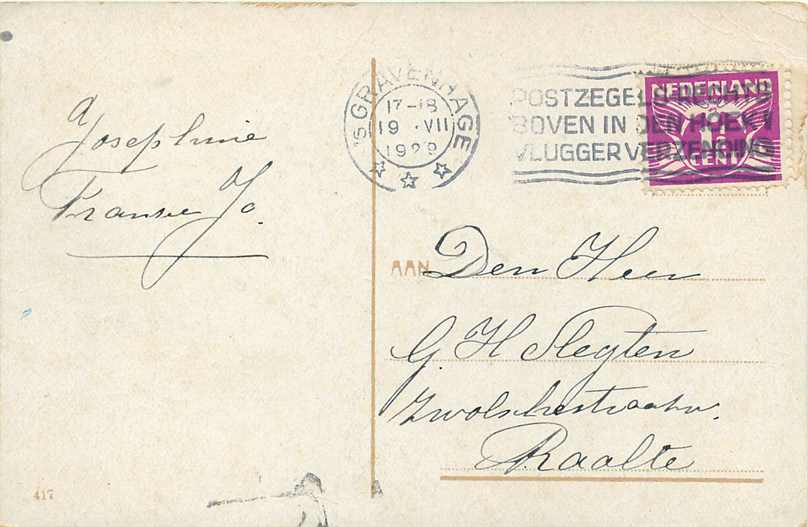 Josephine
Franse Jo.
'S GRAVENHAGE
17-18
19 .VII
1929
POSTZEGELS RECHTS
BOVEN IN DEN HOEK
VLUGGER VERZENDING
NEDERLAND
1½
CENT
AAN Den Heer
G. H Slegten
Zwolschestraat
Raalte
417